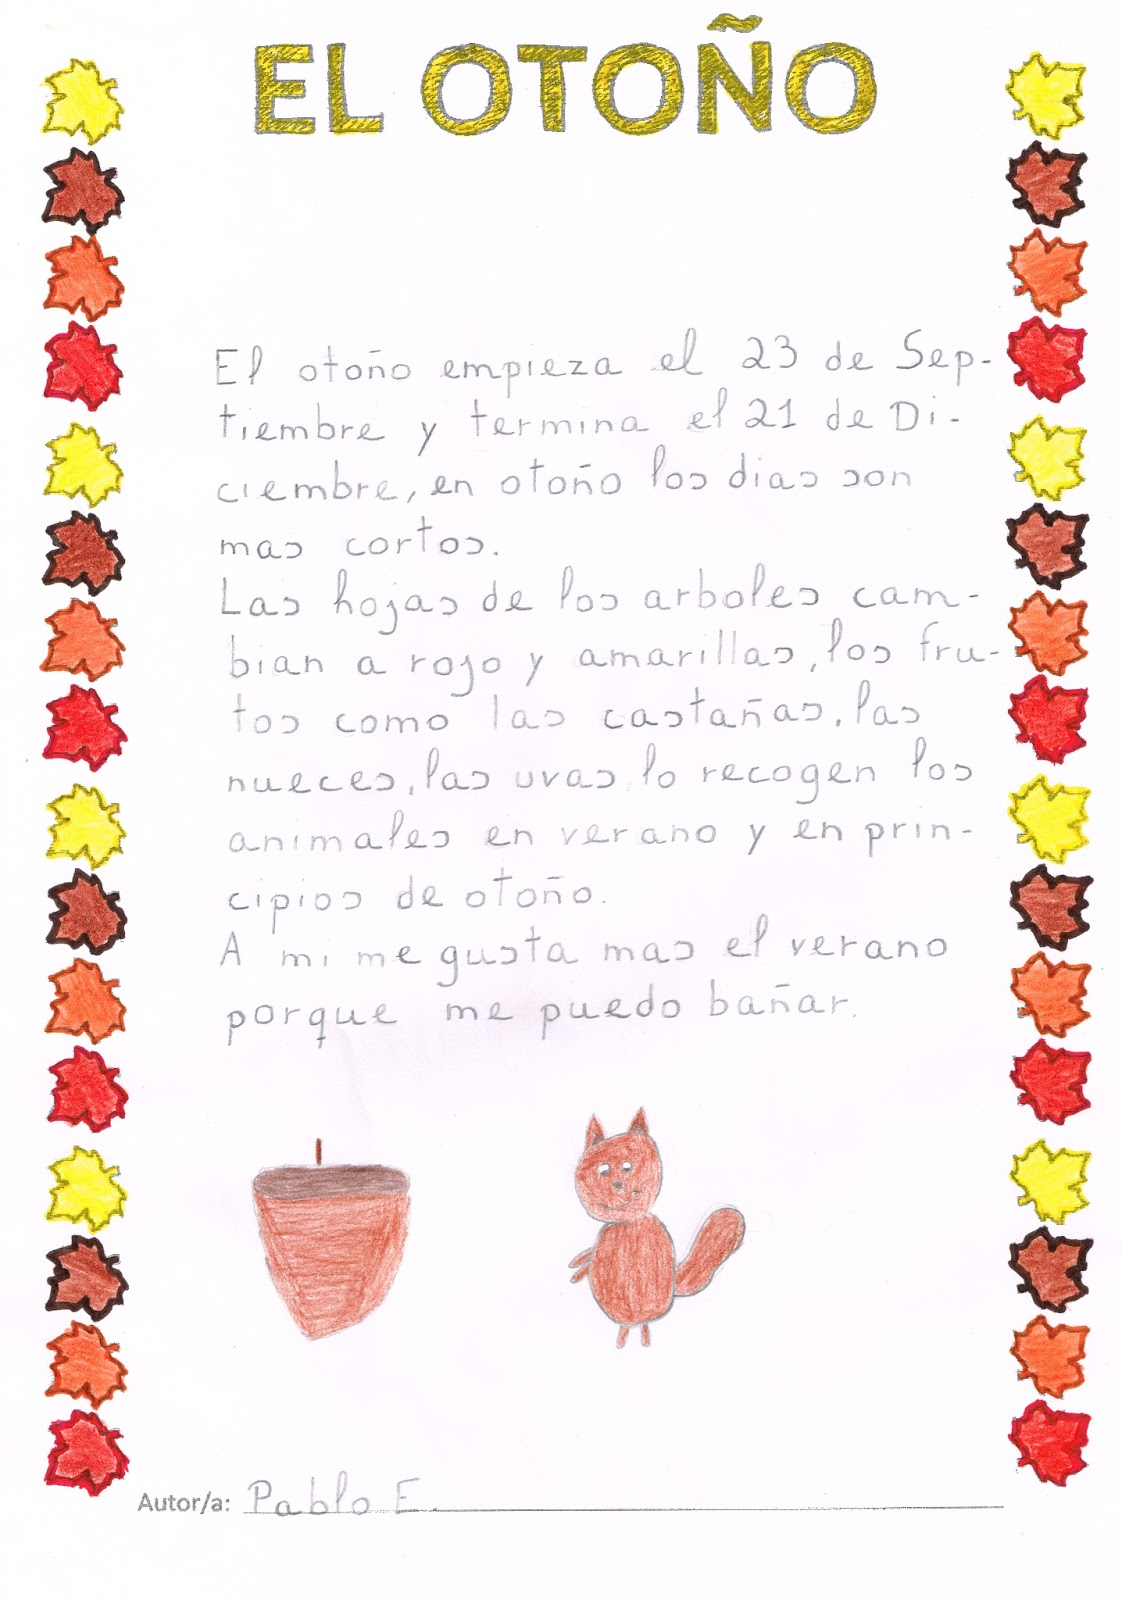 EL OTOÑO
El otoño empieza el 23 de Sep-
tiembre y termina el 21 de Di-
ciembre, en otoño los dias son
mas cortos.
Las hojas de los arboles cam-
bian a rojo y amarillas, los fru-
tos como las castañas, las
nueces, las uvas, lo recogen los
animales en verano y en prin-
cipios de otoño.
A mi me gusta mas el verano
porque me puedo bañar.
Autor/a: Pablo E.